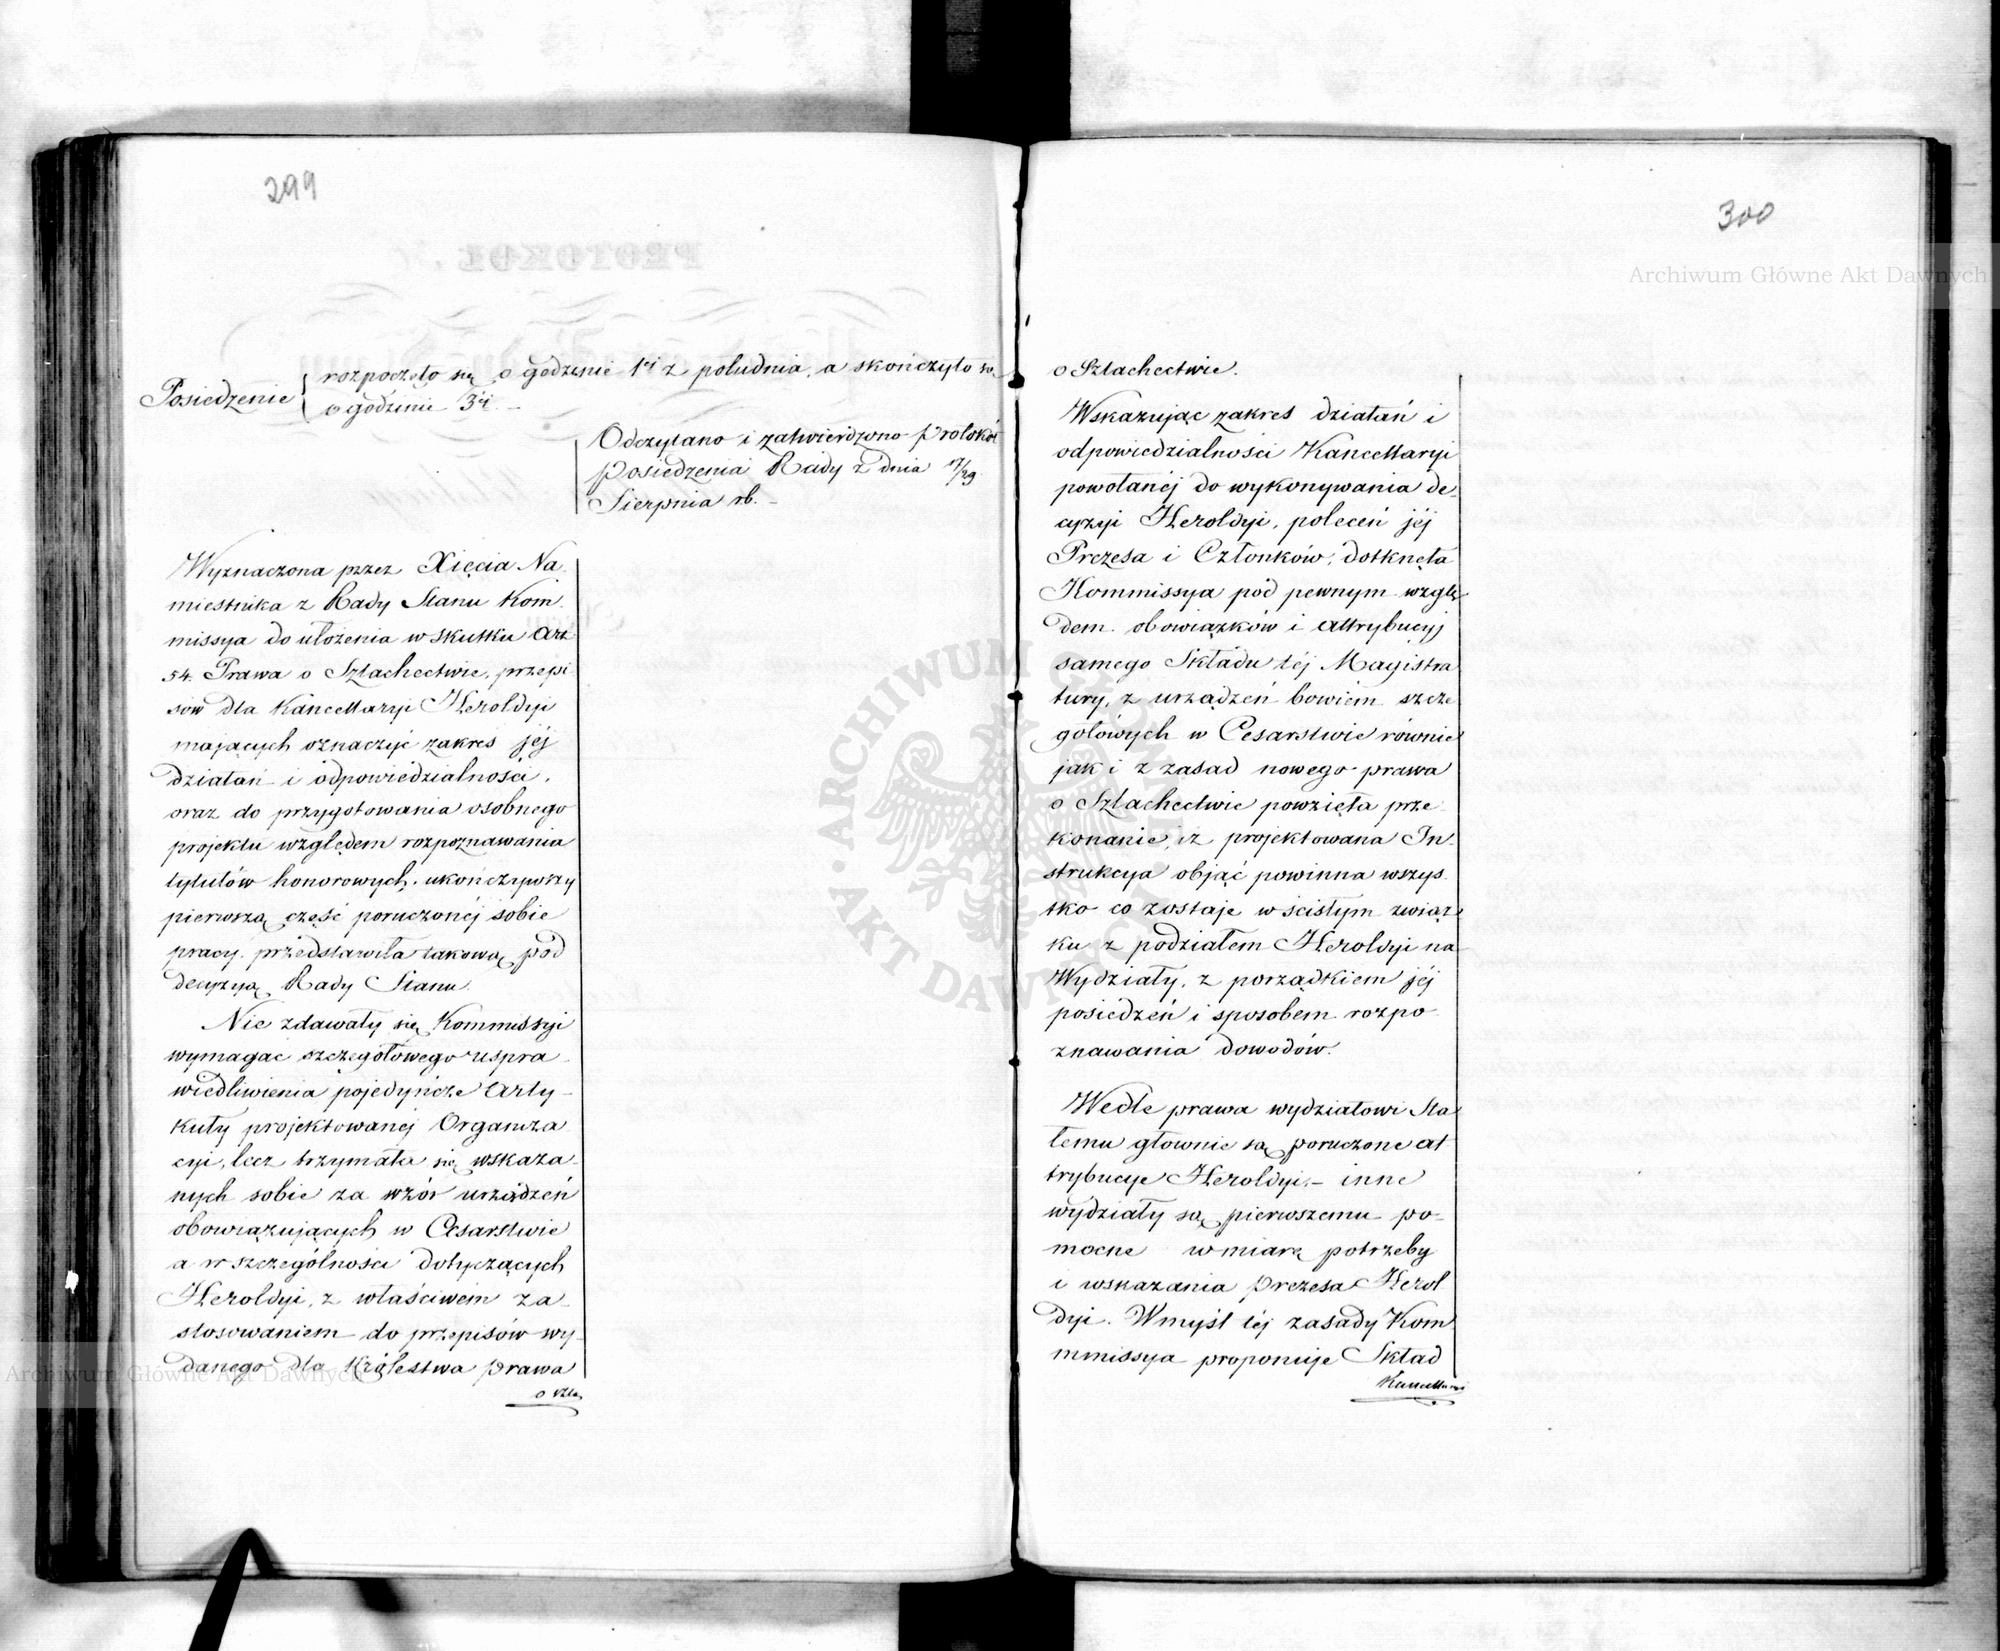 299
Posiedzenie
rozpoczęło się o godzinie 1éj z południa, a skończyło się
o godzinie 3éj. —
Odczytano i zatwierdzono protokół
Posiedzenia Rady z dnia 17/29
Sierpnia rb. —
Wyznaczona przez Xięcia Na-
miestnika z Rady Stanu Kom-
missya do ułożenia w skutku Art
54. Prawa o Szlachectwie, przepi-
sów dla Kancellaryi Heroldyi
mających oznaczyć zakres jéj
działań i odpowiedzialności,
oraz do przygotowania osobnego
projektu względem rozpoznawania
tytułów honorowych, ukończywszy
pierwszą część poruczonéj sobie
pracy, przedstawiła takową pod
decyzyą Rady Stanu.
Nie zdawały się Kommissyi
wymagać szczegółowego uspra-
wiedliwienia pojedyńcze Arty-
kuły projektowanéj Organiza-
cyi, lecz trzymała się wskaza-
nych sobie za wzór urządzeń
obowiązujących w Cesarstwie
a w szczególności dotyczących
Heroldyi, z właściwem za-
stosowaniem do przepisów wy-
danego dla Królestwa prawa
o Szla
300
o Szlachectwie.
Wskazując zakres działań i
odpowiedzialności Kancellaryi
powołanéj do wykonywania de-
cyzyi Heroldyi, poleceń jéj
Prezesa i Członków, dotknęła
Kommissya pod pewnym wzglę-
dem obowiązków i attrybucyj
samego Składu téj Magistra
tury, z urządzeń bowiem szcze
gółowych w Cesarstwie równie
jak i z zasad nowego prawa
o Szlachectwie powzięła prze-
konanie, iż projektowana In-
strukcya objąć powinna wszys-
tko co zostaje w ścisłym związ-
ku z podziałem Heroldyi na
Wydziały, z porządkiem jéj
posiedzeń i sposobem rozpo-
znawania dowodów.
Wedle prawa wydziałowi Sta
łemu głownie są poruczone at
trybucye Heroldyi, — inne
wydziały są pierwszemu po-
mocne w miarę potrzeby
i wskazania Prezesa Herol
dyi. W myśl téj zasady Kom-
mmissya proponuje Skład
Kancellaryi
Archiwum Główne Akt Dawnych
Archiwum Główne Akt Dawnych
ARCHIWUM GŁÓWNE AKT DAWNYCH